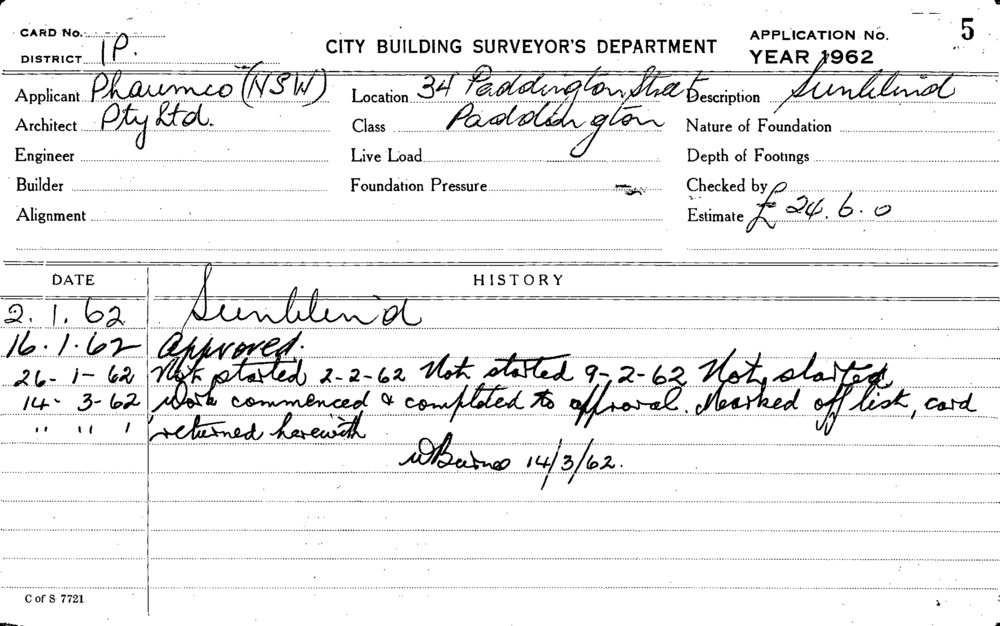 CARD No.
DISTRICT 1P.
CITY BUILDING SURVEYOR'S DEPARTMENT
APPLICATION No. 5
YEAR 1962
Applicant Pharmco (NSW)
Location 34 Paddington Street
Description Sunblind
Architect Pty Ltd.
Class Paddington
Nature of Foundation
Engineer
Live Load
Depth of Footings
Builder
Foundation Pressure
Checked by
Alignment
Estimate £ 24.6.0
DATE HISTORY
2.1.62 Sunblind
16.1.62 Approved.
26-1-62 Not started 2-2-62 Not started 9-2-62 Not started
14-3-62 Work commenced & completed to approval. Marked off list, card
" " " returned herewith
14/3/62.
C of S 7721